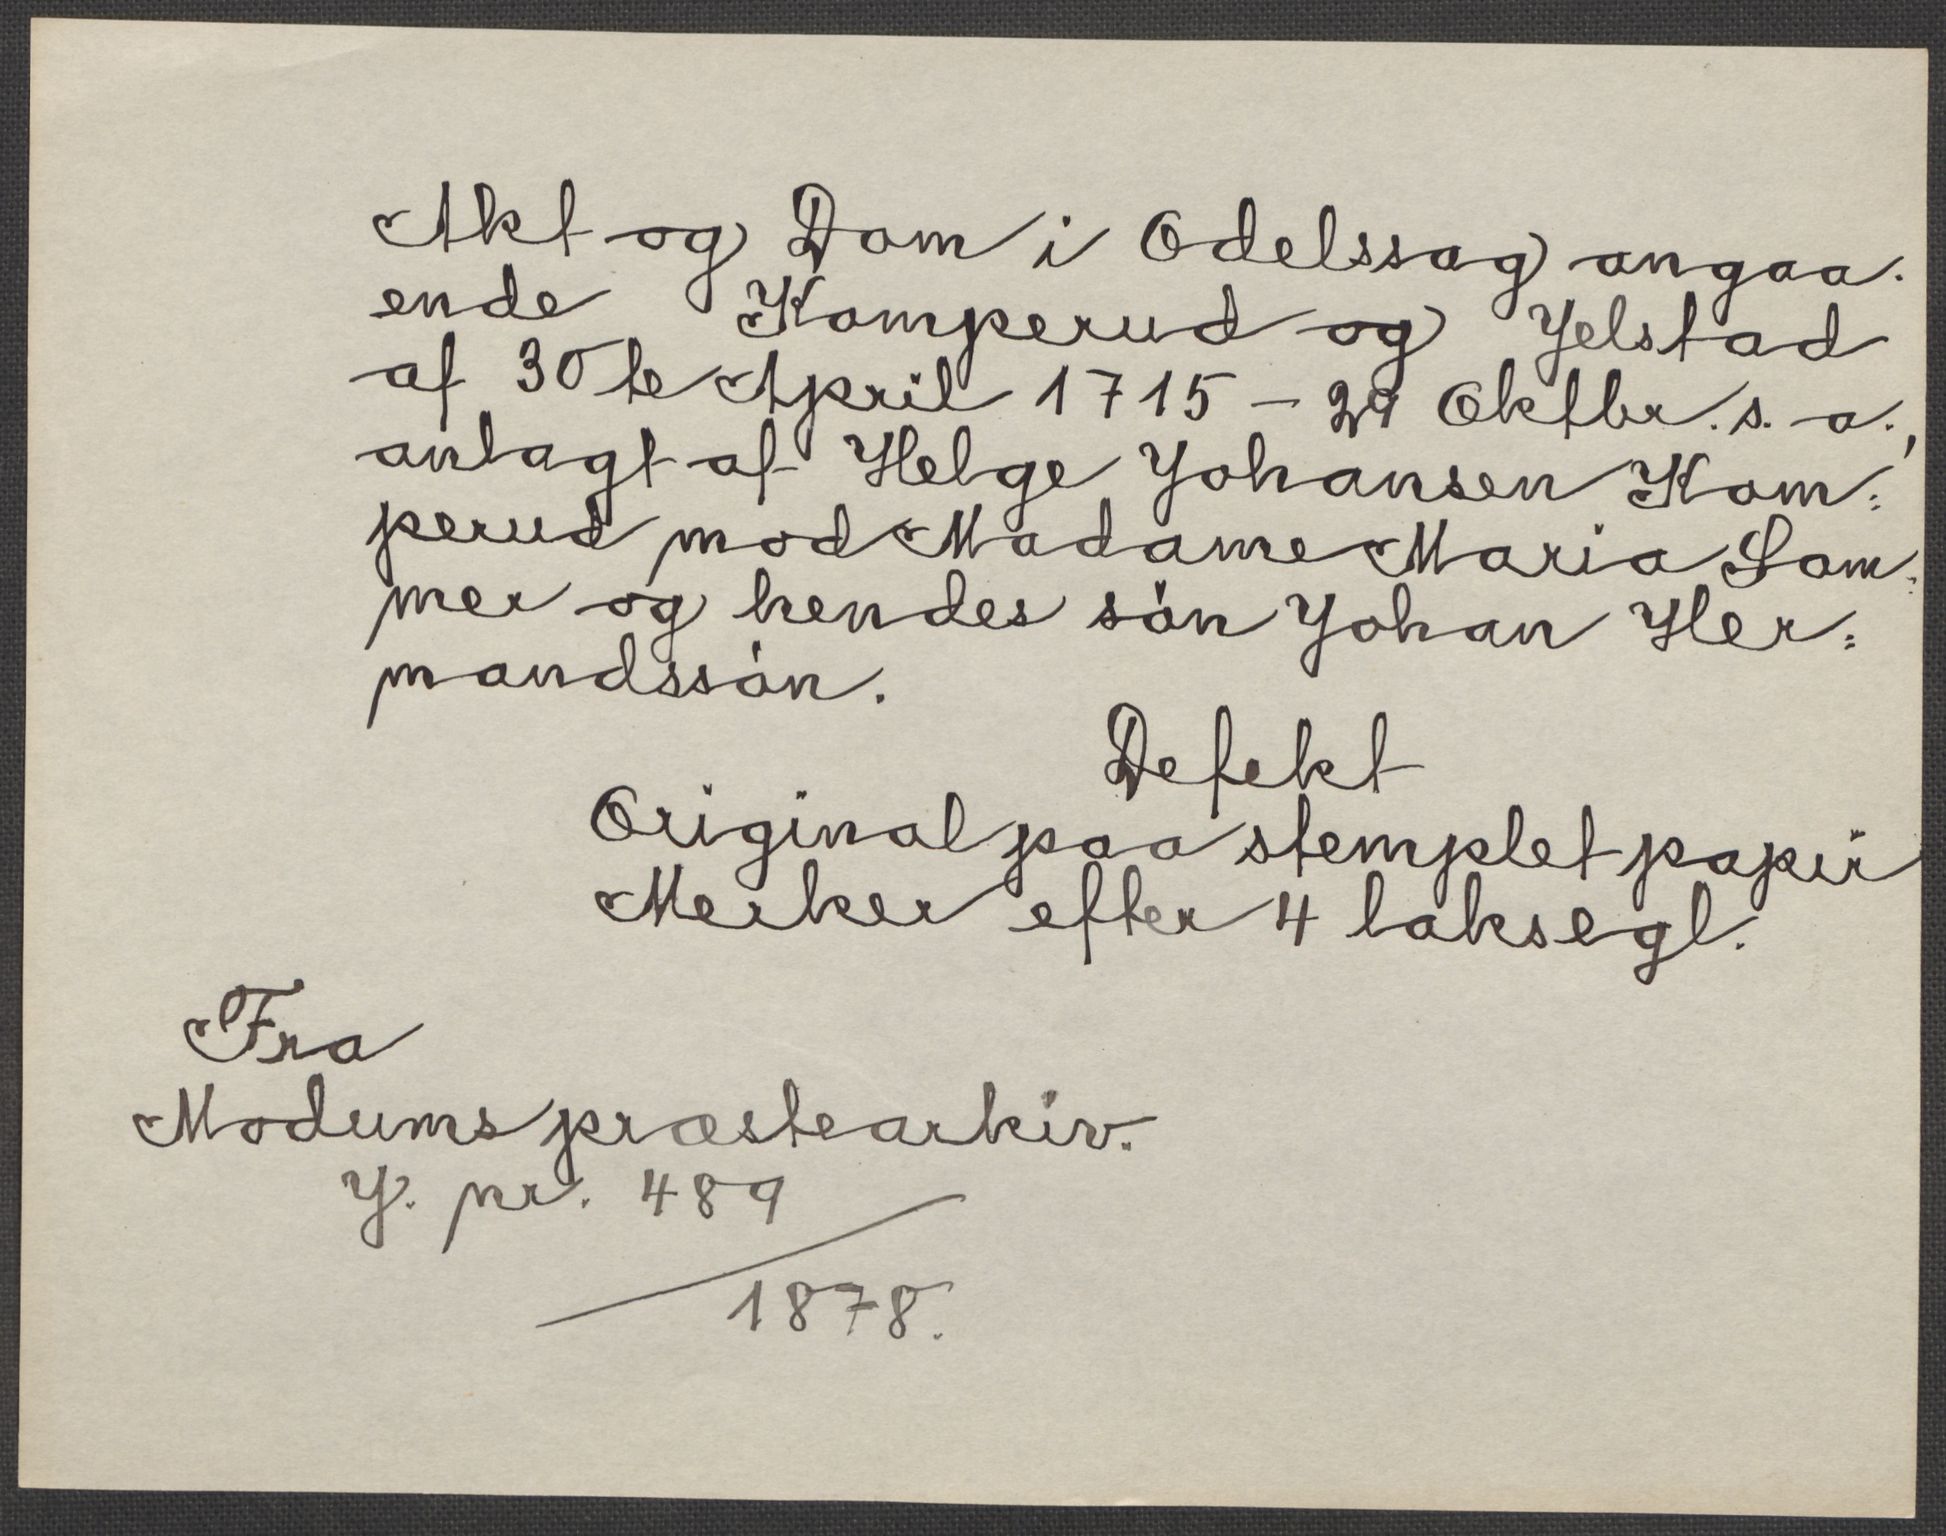 Akt og Dom i Odelssag angaa-
ende Komperud og Jelstad
af 30te April 1715 - 29 Oktbr. s. a.,
anlagt af Helge Johansen Kom=
perud mod Madame Maria Som=
mer og hendes sön Johan Her=
mandssön.
Defekt
Original paa stemplet papir
Merker efter 4 laksegl.
Fra
Modums præstearkiv.
J. nr. 489
1878.